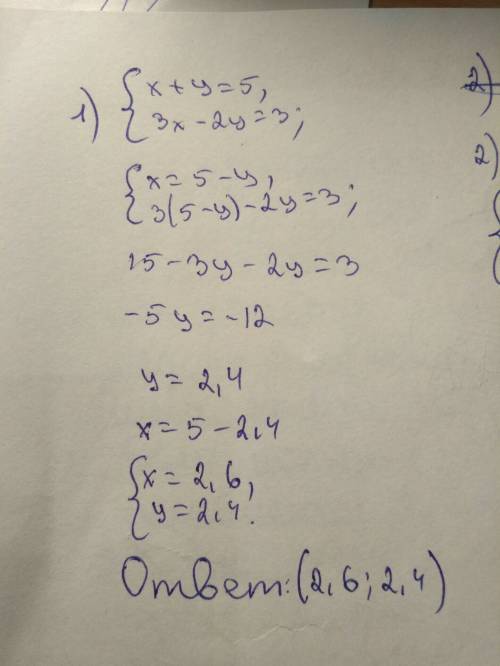 1) { x + y = 5,
3x - 2y = 3;
{ x = 5 - y,
3(5-y) - 2y = 3;
15 - 3y - 2y = 3
-5y = -12
y = 2,4
x = 5 - 2,4
{ x = 2,6,
y = 2,4.
Ответ: (2,6; 2,4)
2)
2)
{